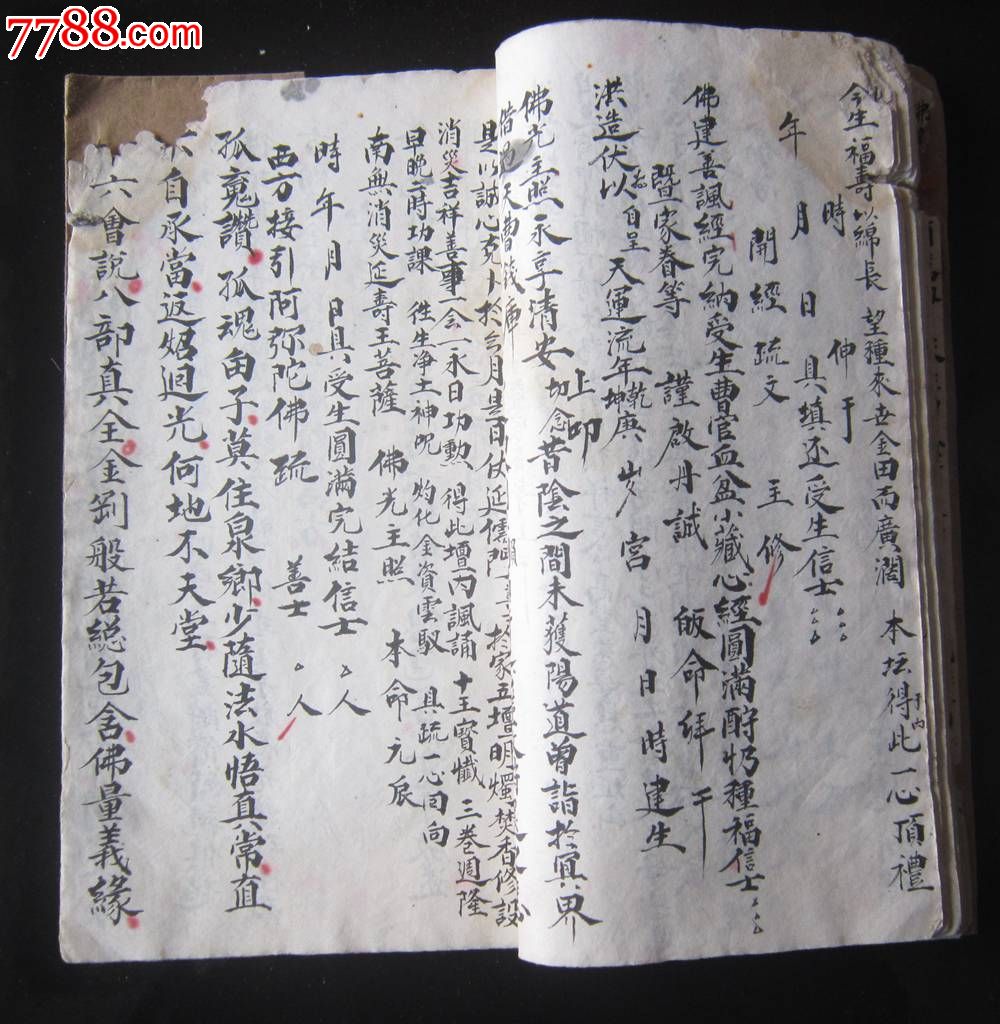 7788.com
今生一福壽以綿長 望種來世金田而廣濶 本坛得此一心頂禮
時 伸于
年 月 日 具填还受生信士
開經疏文 主修
佛建善諷經完納受生曹官血盆小藏心經圓滿酧炤種福信士
暨家眷等 謹啟丹誠 皈命拜干
洪造伏以 自呈 天運流年乾坤庚 岁 宮 月 日 時建生
上叩
佛光主照永享清安 切念昔陰之間未獲陽道曾詣於冥界
是以誠心 於今月是日仗延儒門 於家立壇明燭焚香修設
消災吉祥善事一会一永日功勲 得此壇内諷誦 十王寶懺 三巻週隆
早晚二時功課 徃生净土神呪 灼化金資雲馭 具疏一心囘向
南無消災延壽王菩薩 佛光主照 本命元辰
時年月日具受生圓滿完結信士 人
西方接引阿弥陀佛疏 善士 人
孤䰟讚 孤魂由子莫住泉鄉少隨法水悟真常直
自承當返炤迴光何地不天堂
六會說八部真全金剛般若総包含佛量義緣